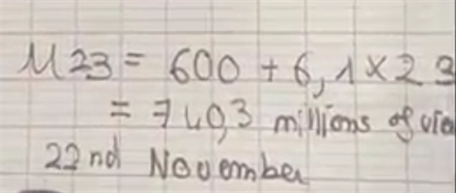 U23 = 600 + 6,1 × 23
= 740,3 millions of vie
22nd November